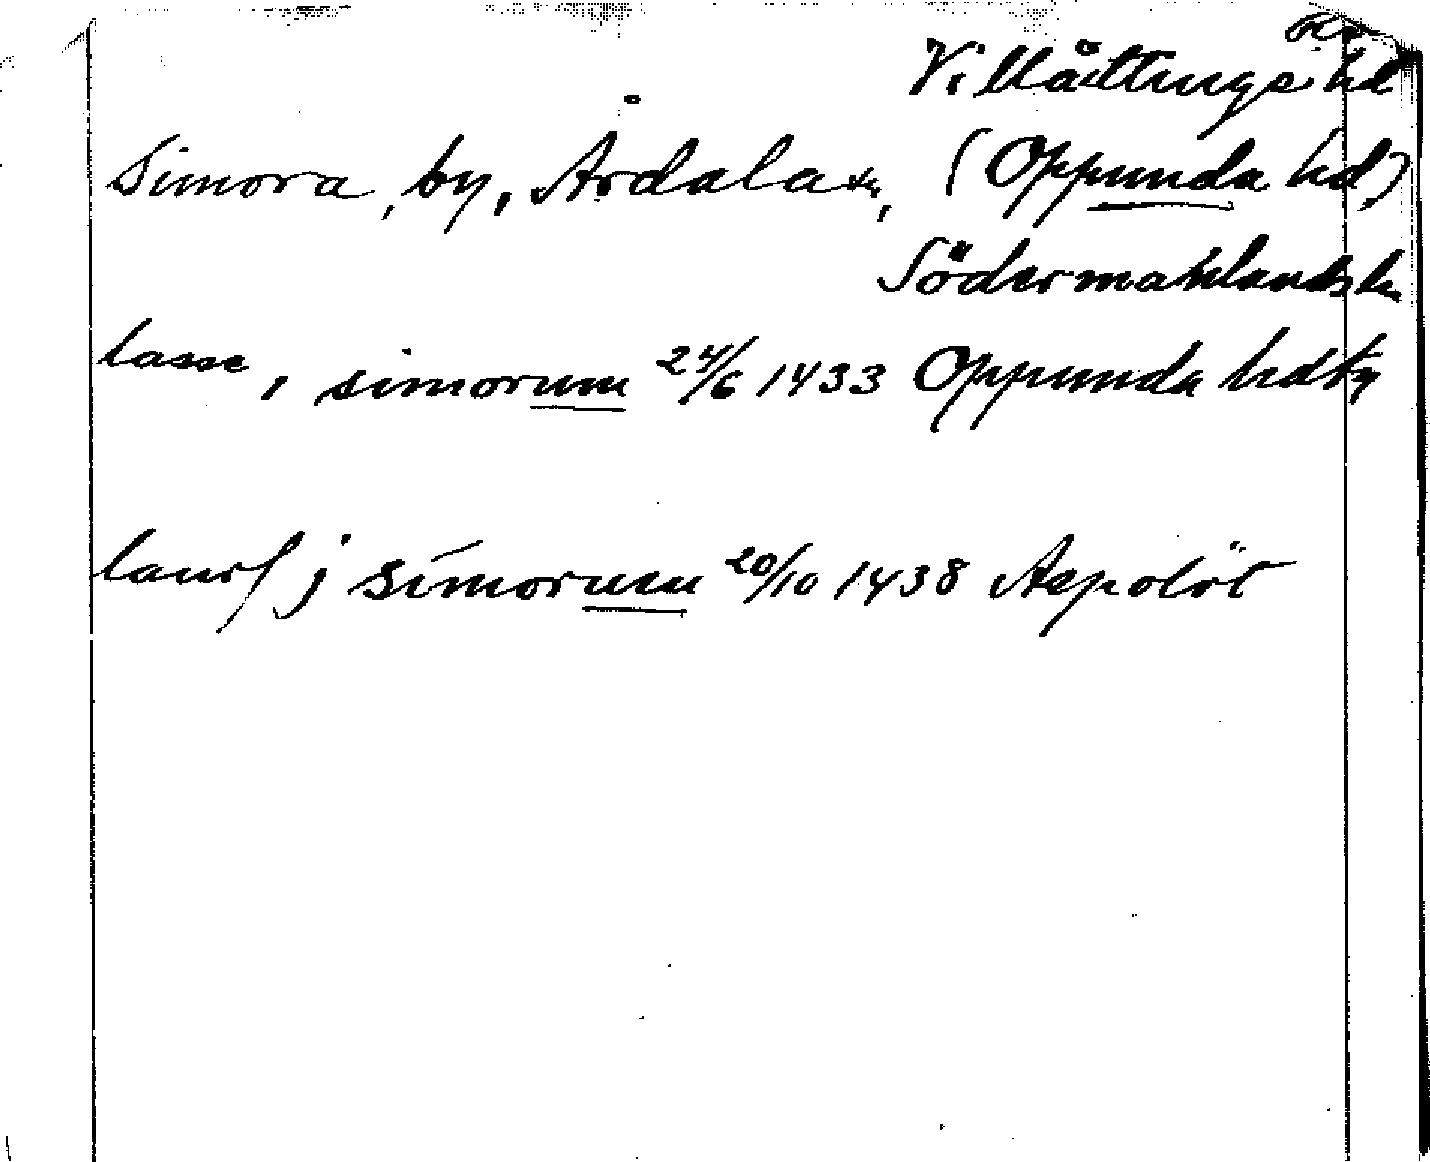 Villåttinge hd
Simora, by, Årdala sn, (Oppunda hd)
Södermanlands ln
lasse, simorum 24/6 1433 Oppunda hdtg
j simorum 20/10 1438